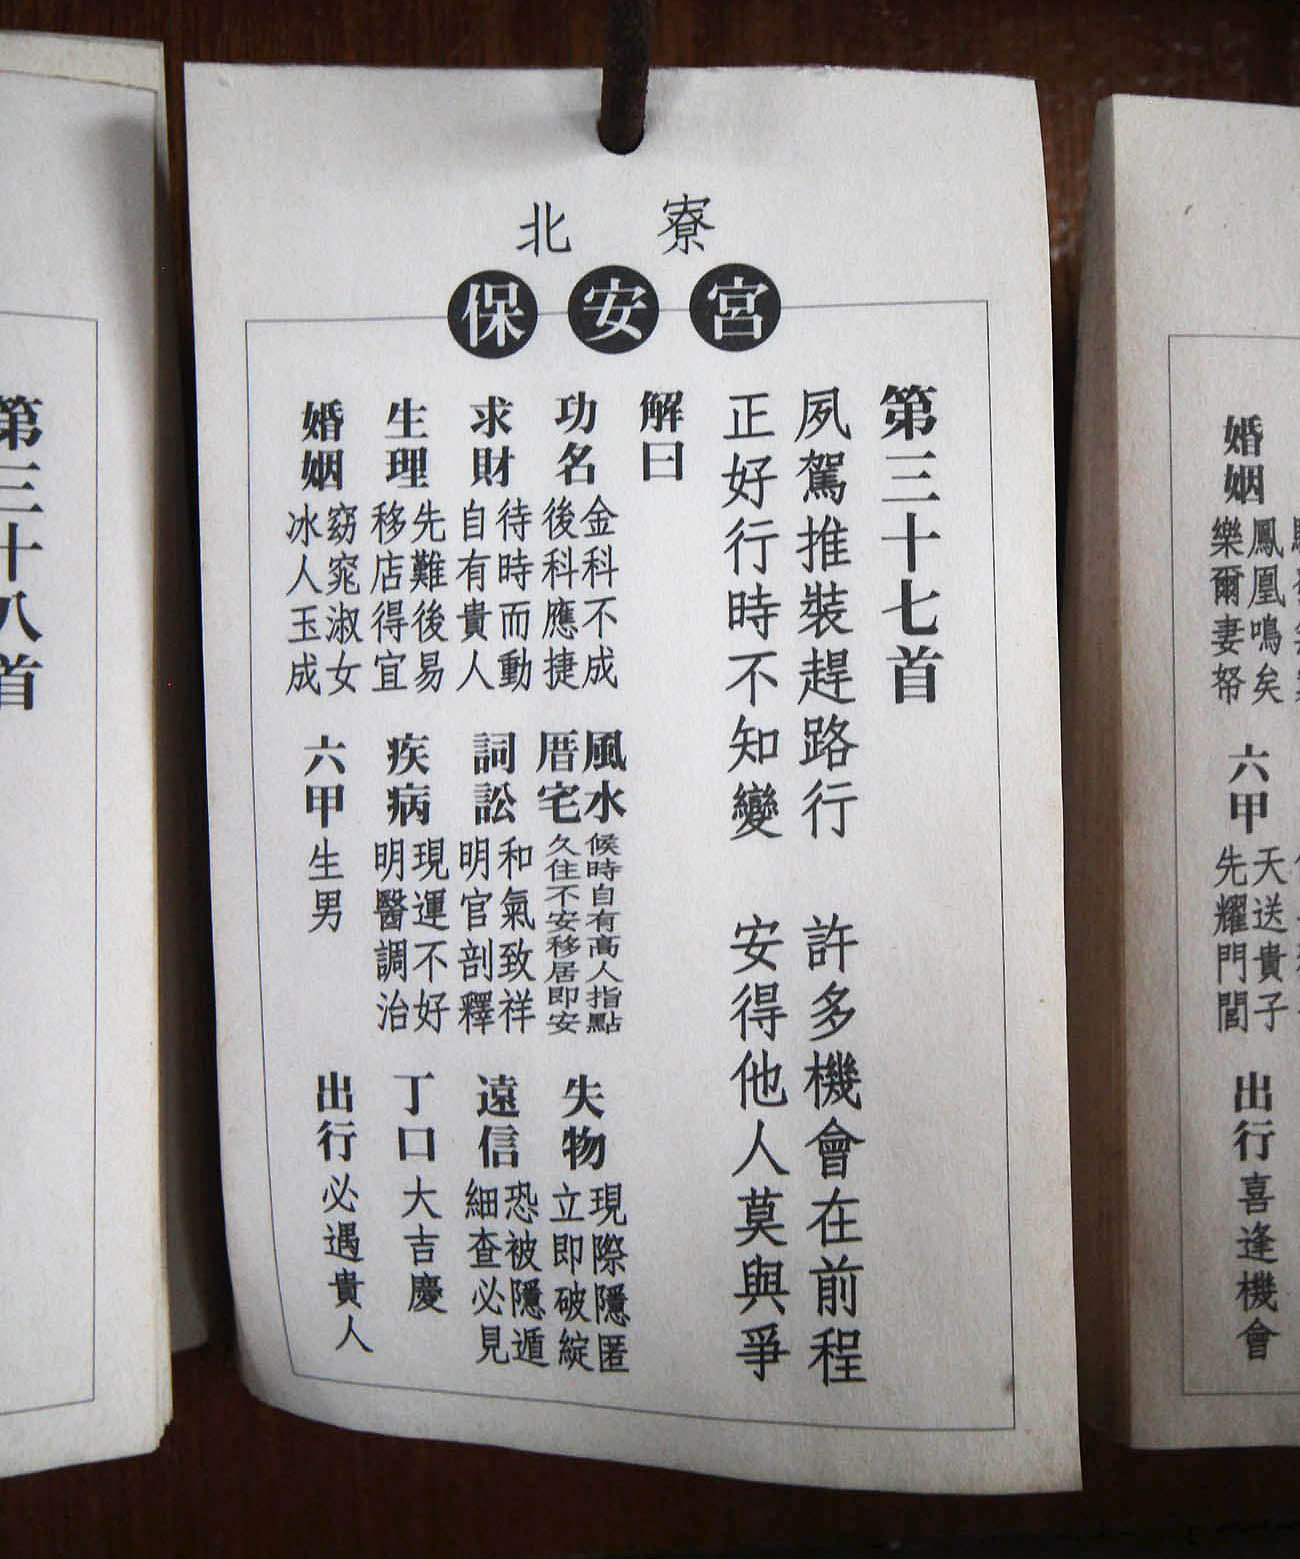 婚姻 鳳凰鳴矣 樂爾妻帑
六甲 天送貴子 先耀門閭
出行 喜逢機會
北寮
保安宮
第三十七首
夙駕推裝趕路行 許多機會在前程
正好行時不知變 安得他人莫與爭
解曰
功名 金科不成 後科應捷
風水 候時自有高人指點
厝宅 久住不安移居即安
失物 現際隱匿 立即破綻
求財 待時而動 自有貴人
詞訟 和氣致祥 明官剖釋
遠信 恐被隱遁 細查必見
生理 先難後易 移店得宜
疾病 現運不好 明醫調治
丁口 大吉慶
婚姻 窈窕淑女 冰人玉成
六甲 生男
出行 必遇貴人
第三十八首